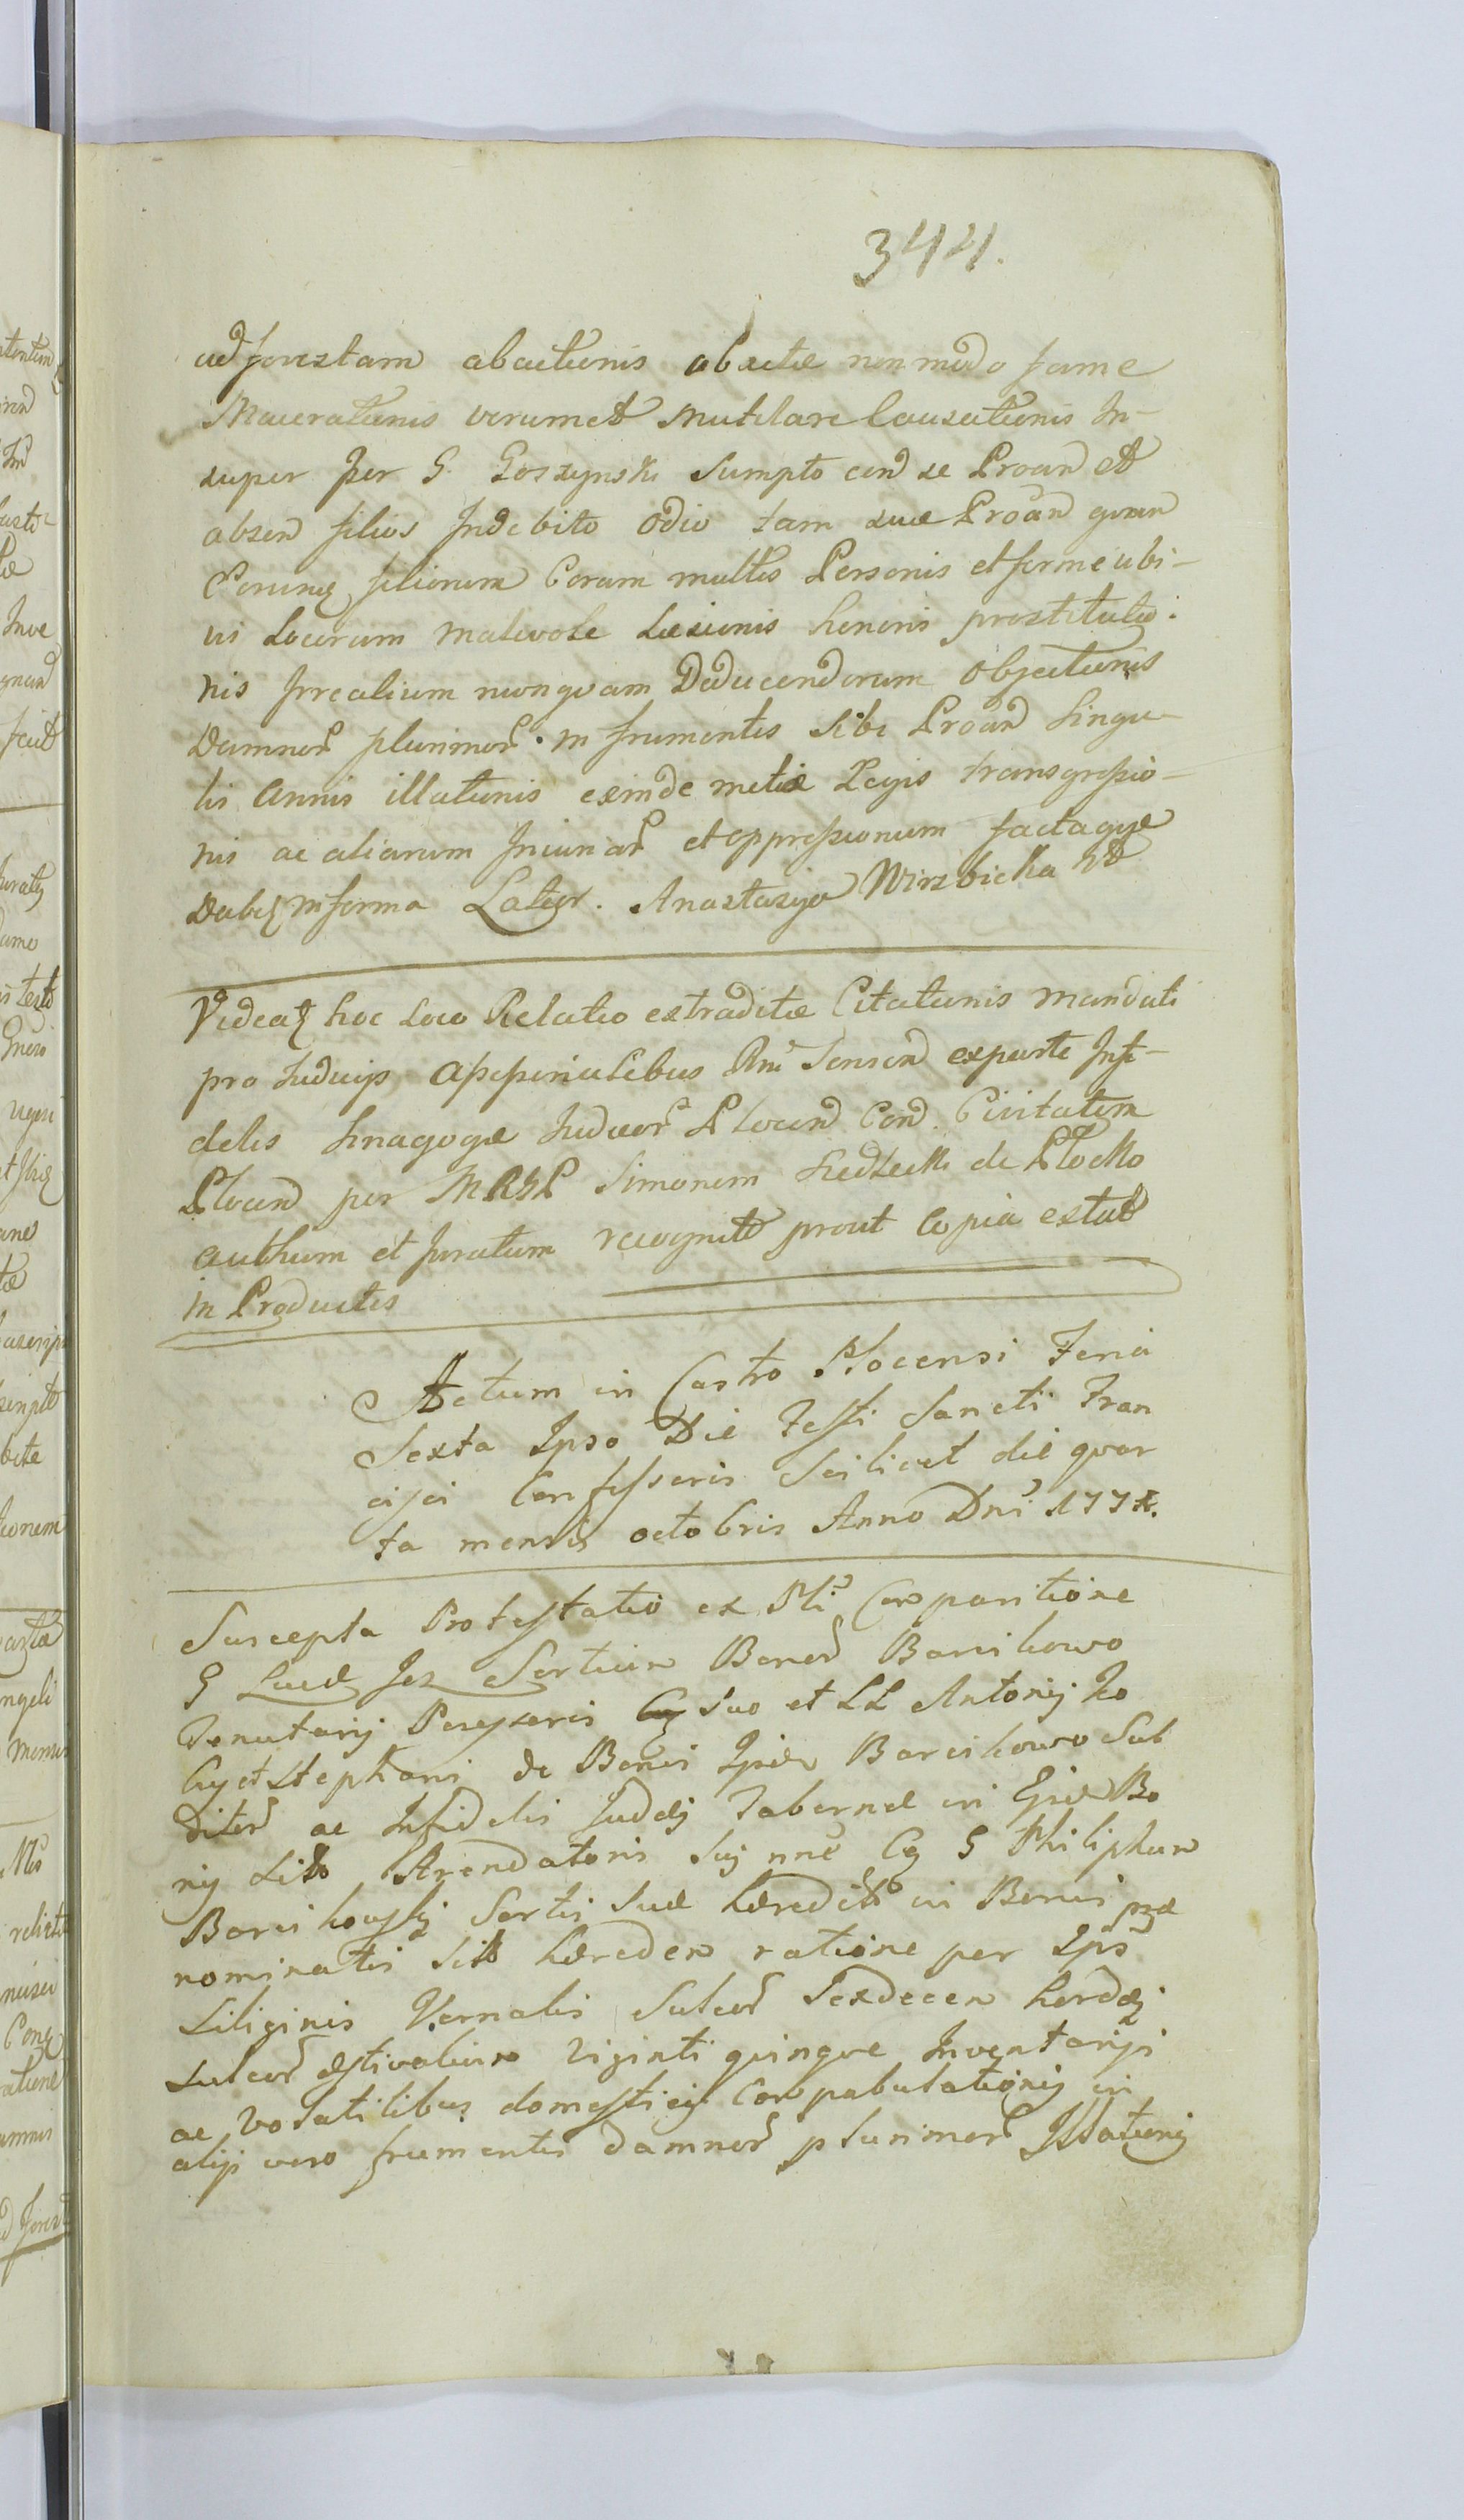 344.
ad forestam abactionis abactae non modo fame
Macerationis verumet mutilare Causationis In-
super per G. Goszynski Sumpto con se Proan et
absen filios Indebito odio tam suae Proan quam
Eorumq filiorum Coram multis Personis et ferme ubi-
vis Locorum malevole Laesionis honoris prostitutio-
nis Irrealium nunquam Deducendorum objectionis
Damnor plurimor in frumentis sibi Proan Singu-
lis Annis illationis exinde metae Legis transgressio-
nis ac aliarum Iniuriar et oppressionum factaque
Dabit in forma Latior. Anastasya Wirzbicka
Videat hoc Loco Relatio extraditae Citationis mandati
pro Iudicys Assessorialibus Rni Sensen ex parte Infi-
delis Sinagogae Iudaeor Plocen Con. Civitatem
Plocen per MRGP Simonem Siedlecki de Plocko
authum et Iuratum recognit prout Copia extat
in Productis
Actum in Castro Plocensi Feria
Sexta Ipso Die Festi Sancti Fran
cisci Confessoris Scilicet die quar
ta mensis octobris Anno Dni 177
Suscepta Protestatio ex Pli Comparitione
G Sortium Bonor Barcikowo
Tenutarij Possessoris suo et LL Antonij Ko
et Stephani de Bonis Ipsis Barcikowo Sub
ditor ac Infidelis Iudaei Tabernae in Eisd Bo
nis Sitae Arendatoris Sui nne Cq G Philiphum
Barcikowski Sortis Suae haeredit in Bonis prae
nominatis Sit haeredem ratione per Ips
Siliginis Vernalis Sulcor Sexdecem hordei
Sulcor aestivalium Viginti quinque Inventarijs
ac volatilibus domesticis Compabulationis in
alijs vero frumentis damnor plurimor Illationis